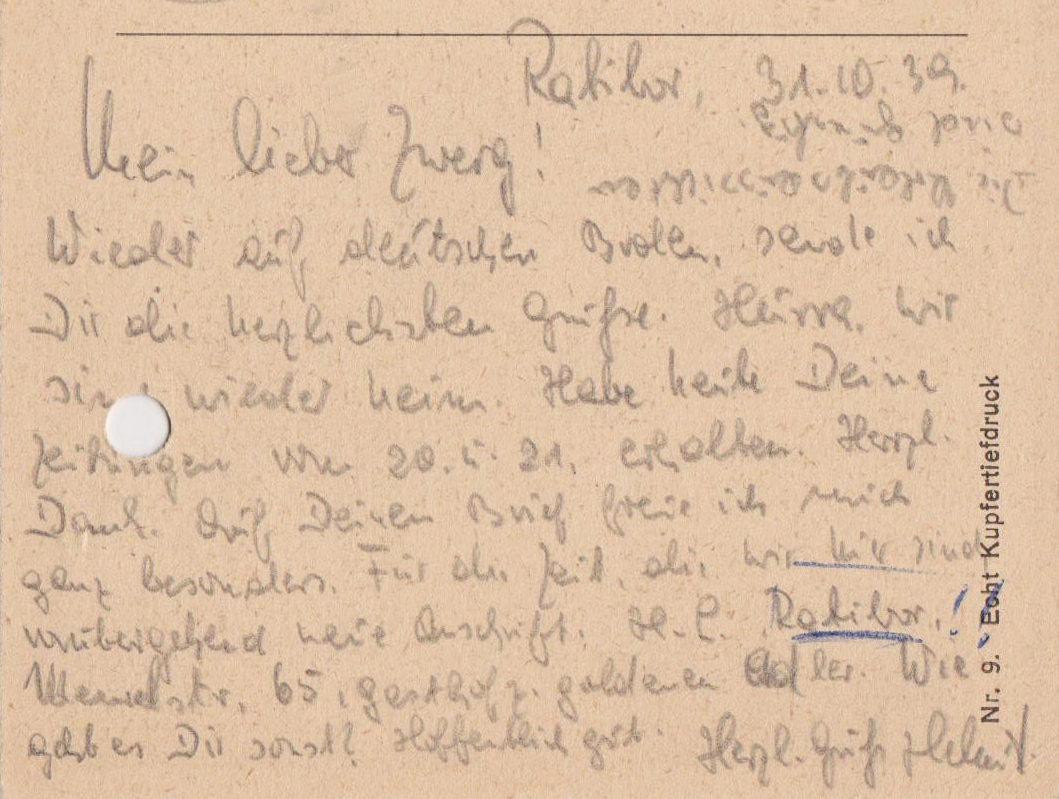 Ratibor, 31.10.39.
Mein lieber Zwerg!
Wieder auf deutschen Boden, sende ich
Dir die herzlichsten Grüße. Hurra, wir
sind wieder heim. Habe heute Deine
Zeitungen vom 20. u. 21. erhalten. Herzl.
Dank. Auf Deinen Brief freue ich mich
ganz besonders. Für die Zeit, die wir hier sind
vorübergehend neue Anschrift. H. L. Ratibor,
65, Gasthof z. goldenen Adler. Wie
geht es Dir sonst? Hoffentlich gut. Herzl. Grüße Helmut
Die
sind
Nr. 9. Echt Kupfertiefdruck